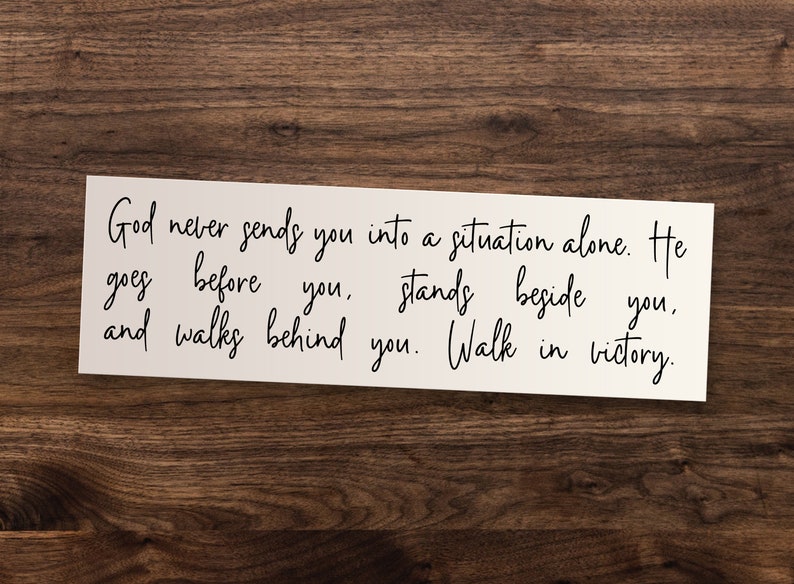 God never sends you into a situation alone. He
goes before you, stands beside you,
and walks behind you. Walk in victory.